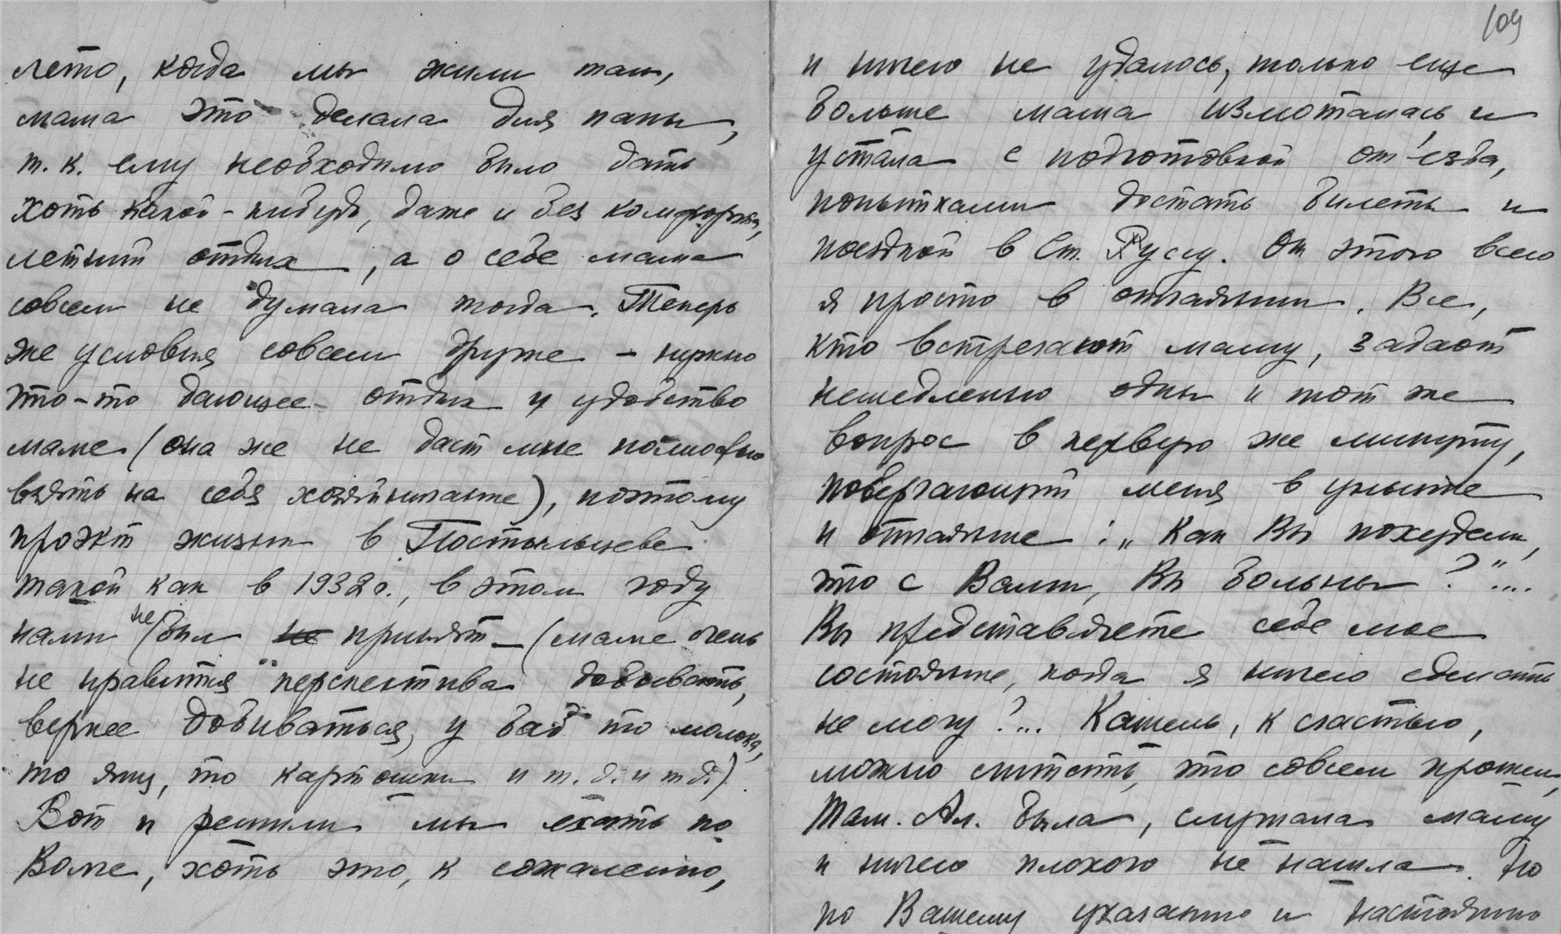 лето, когда мы жили там,
мама это делала для папы,
т. к. ему необходимо было дать
хоть какой-нибудь, даже и без комфорта,
летний отдых, а о себе мама
совсем не думала тогда. Теперь
же условия совсем другие – нужно
что-то дающее отдых и удобство
маме (она же не даст мне полностью
взять на себя хозяйничанье), поэтому
проэкт жизни в
такой как в 1932 г., в этом году
нами не был не принят – (маме очень
не нравится перспектива добывать,
вернее добиваться, у баб то молока,
то яиц, то картошки и т. д. и т. д.)
Вот и решили мы ехать по
Волге, хоть это, к сожалению,
109
и ничего не удалось, только еще
больше мама измоталась и
устала с подготовкой от'езда,
попытками достать билеты и
поездкой в Ст. Руссу. От этого всего
я просто в отчаянии. Все,
кто встречают маму, задают
немедленно один и тот же
вопрос в первую же минуту,
повергающий меня в уныние
и отчаяние: „Как Вы похудели,
что с Вами, Вы больны?"...
Вы представляете себе мое
состояние, когда я ничего сделать
не могу?... Кашель, к счастью,
можно считать, что совсем прошел,
Там. Ал. была, слушала маму
и ничего плохого не нашла. Но
по Вашему указанию и настоянию